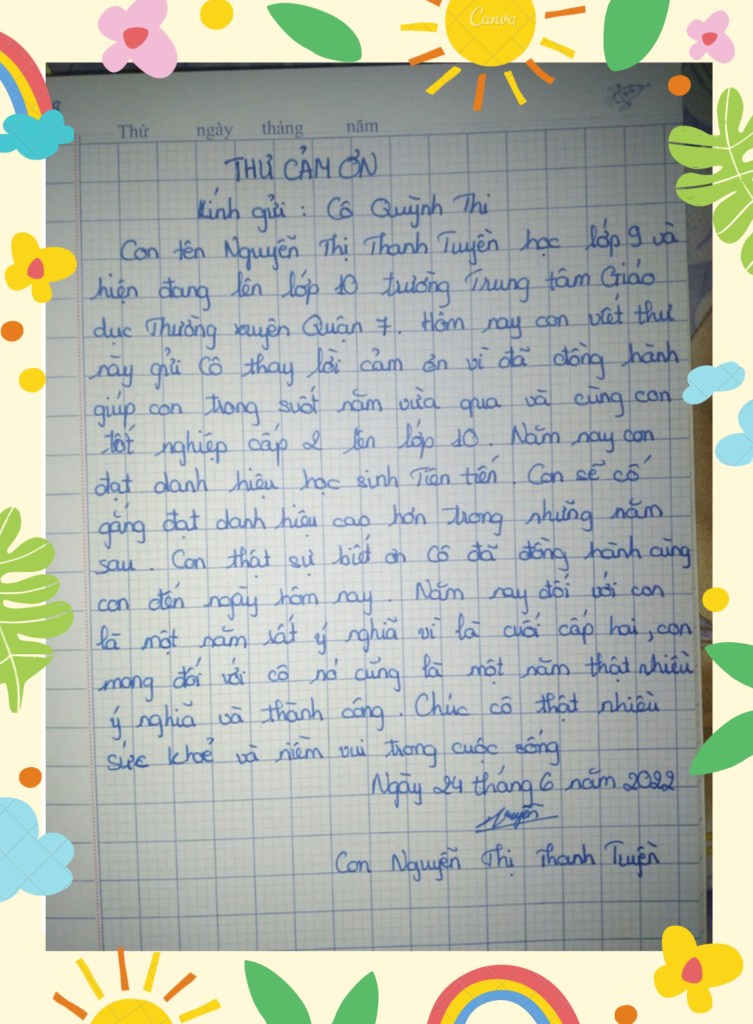 Canva
Thứ ngày tháng năm
THƯ CẢM ƠN
Kính gửi : Cô Quỳnh Thi
Con tên Nguyễn Thị Thanh Tuyền học lớp 9 và
hiện đang lên lớp 10 trường Trung tâm Giáo
dục Thường xuyên Quận 7. Hôm nay con viết thư
này gửi Cô thay lời cảm ơn vì đã đồng hành
giúp con trong suốt năm vừa qua và cùng con
tốt nghiệp cấp 2 lên lớp 10. Năm nay con
đạt danh hiệu học sinh Tiên tiến. Con sẽ cố
gắng đạt danh hiệu cao hơn trong những năm
sau. Con thật sự biết ơn cô đã đồng hành cùng
con đến ngày hôm nay. Năm nay đối với con
là một năm rất ý nghĩa vì là cuối cấp hai, con
mong đối với cô nó cũng là một năm thật nhiều
ý nghĩa và thành công. Chúc cô thật nhiều
sức khoẻ và niềm vui trong cuộc sống
Ngày 24 tháng 6 năm 2022
Tuyền
Con Nguyễn Thị Thanh Tuyền